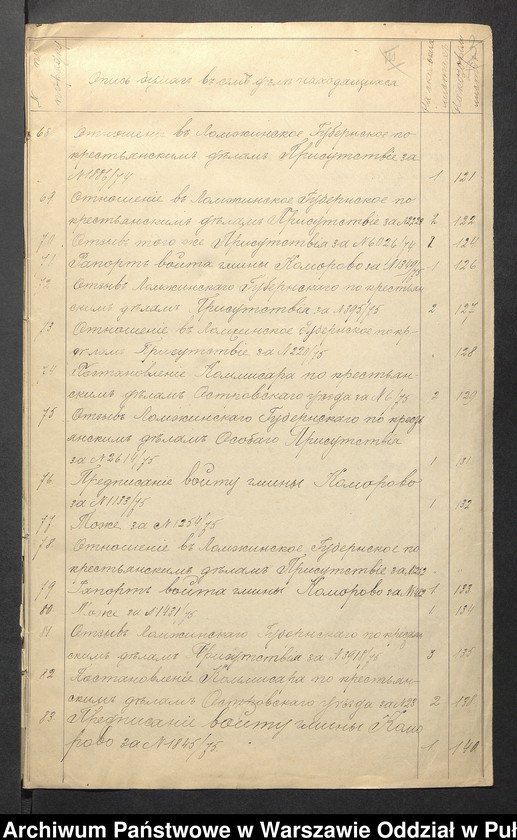 Опись бумаг въ семъ дѣлѣ находящихся
68. Отношеніе въ Ломжинское Губернское по
крестьянскимъ дѣламъ Присутствіе за
1 121
69 Отношеніе въ Ломжинское Губернское по
крестьянскимъ дѣламъ Присутствіе за 2 122
70. Отзывъ того же Присутствія за №6026/74 2 124
71 Рапортъ войта гмины Коморово за №1349/75 1 126
72 Отзывъ Ломжинскаго Губернскаго по крестьян
скимъ дѣламъ Присутствія за №395/75 2 127
73 Отношеніе въ Ломжинское Губернское по кр.
дѣламъ Присутствіе за №220/75 128
74 Постановленіе Коммисара по крестьян-
скимъ дѣламъ Островскаго уѣзда за №6/75 2 129
75 Отзывъ Ломжинскаго Губернскаго по кресть
янскимъ дѣламъ Особаго Присутствія
за №2614/75 1 131
76 Предписаніе войту гмины Коморово
за №1133/75 1 132
77 Тоже за №1254/75
78. Отношеніе въ Ломжинское Губернское по
крестьянскимъ дѣламъ Присутствіе за
79 Рапортъ войта гмины Коморово за 1 133
80 Тоже за №1431/75 1 134
81 Отзывъ Ломжинскаго Губернскаго по крестьян
скимъ дѣламъ Присутствія за №3918/75 3 135
82 Постановленіе Коммисара по крестьян-
скимъ дѣламъ Островскаго уѣзда за 2 138
83. Предписаніе войту гмины Комо
рово за №1845/75. 1 140
Archiwum Państwowe w Warszawie Oddział w Puł